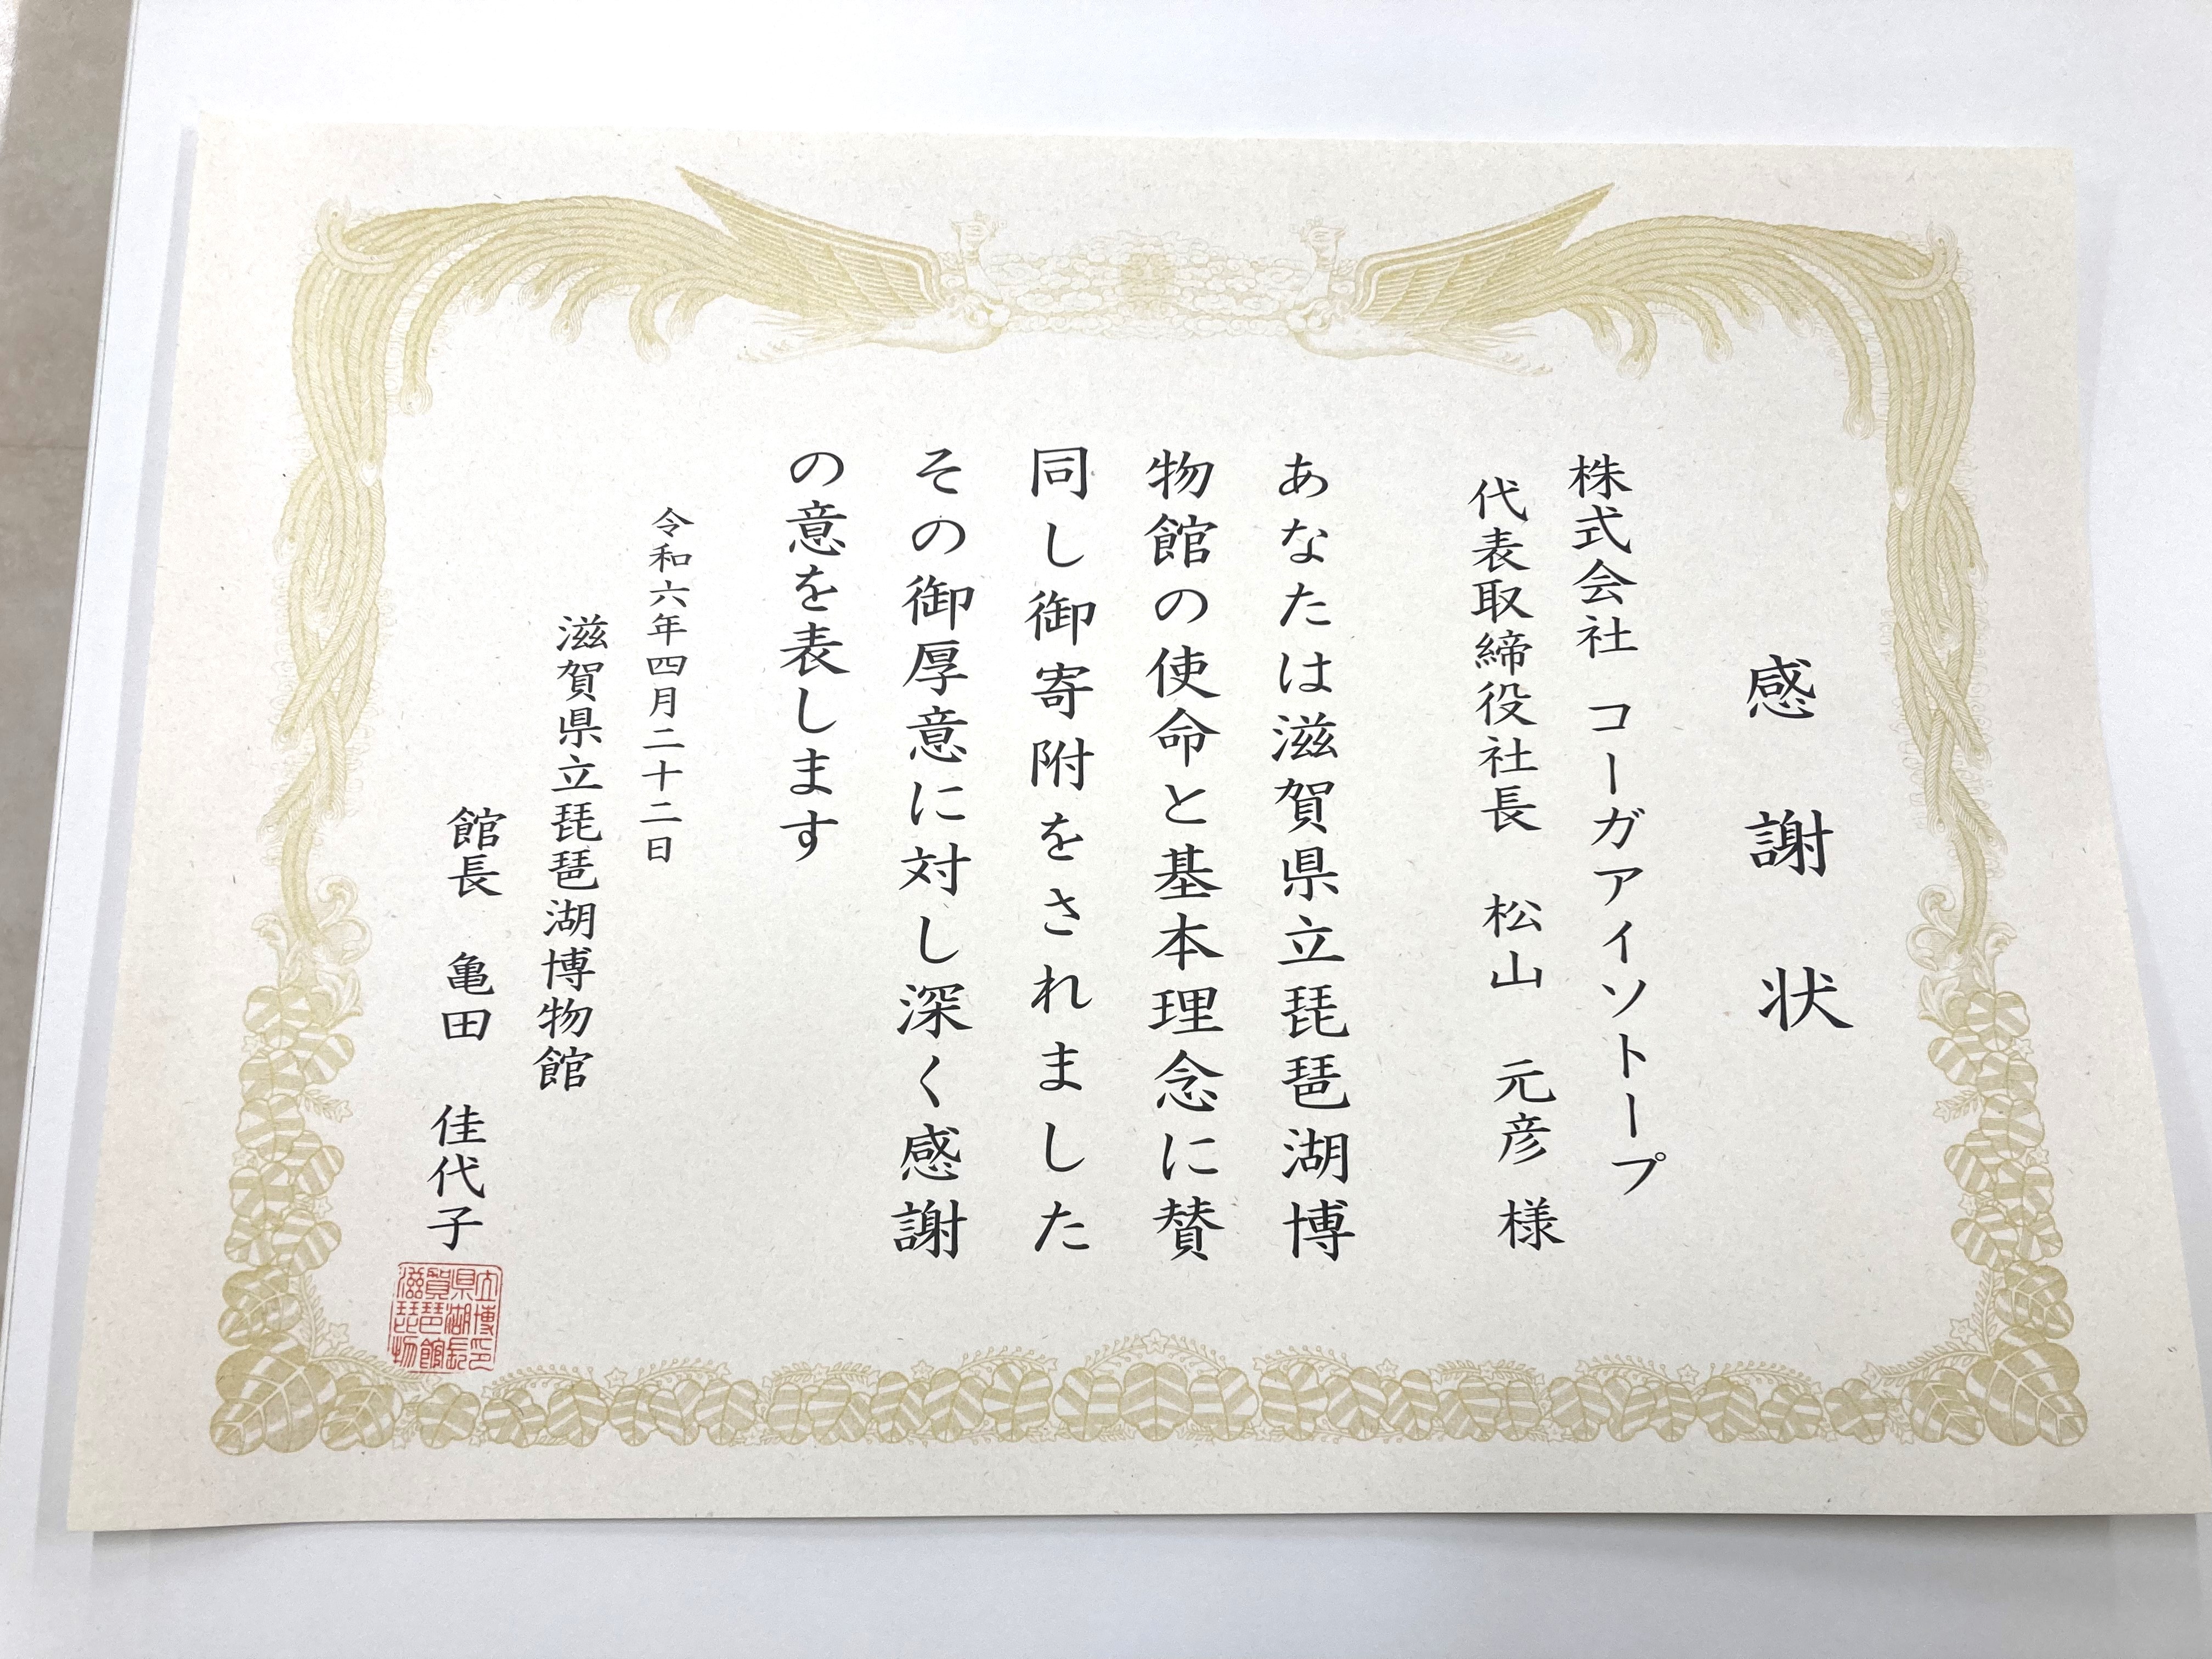 感謝状
株式会社 コーガアイソトープ
代表取締役社長 松山 元彦 様
あなたは滋賀県立琵琶湖博
物館の使命と基本理念に賛
同し御寄附をされました
その御厚意に対し深く感謝
の意を表します
令和六年四月二十二日
滋賀県立琵琶湖博物館
館長 亀田 佳代子
滋賀県立
琵琶湖博
物館長印